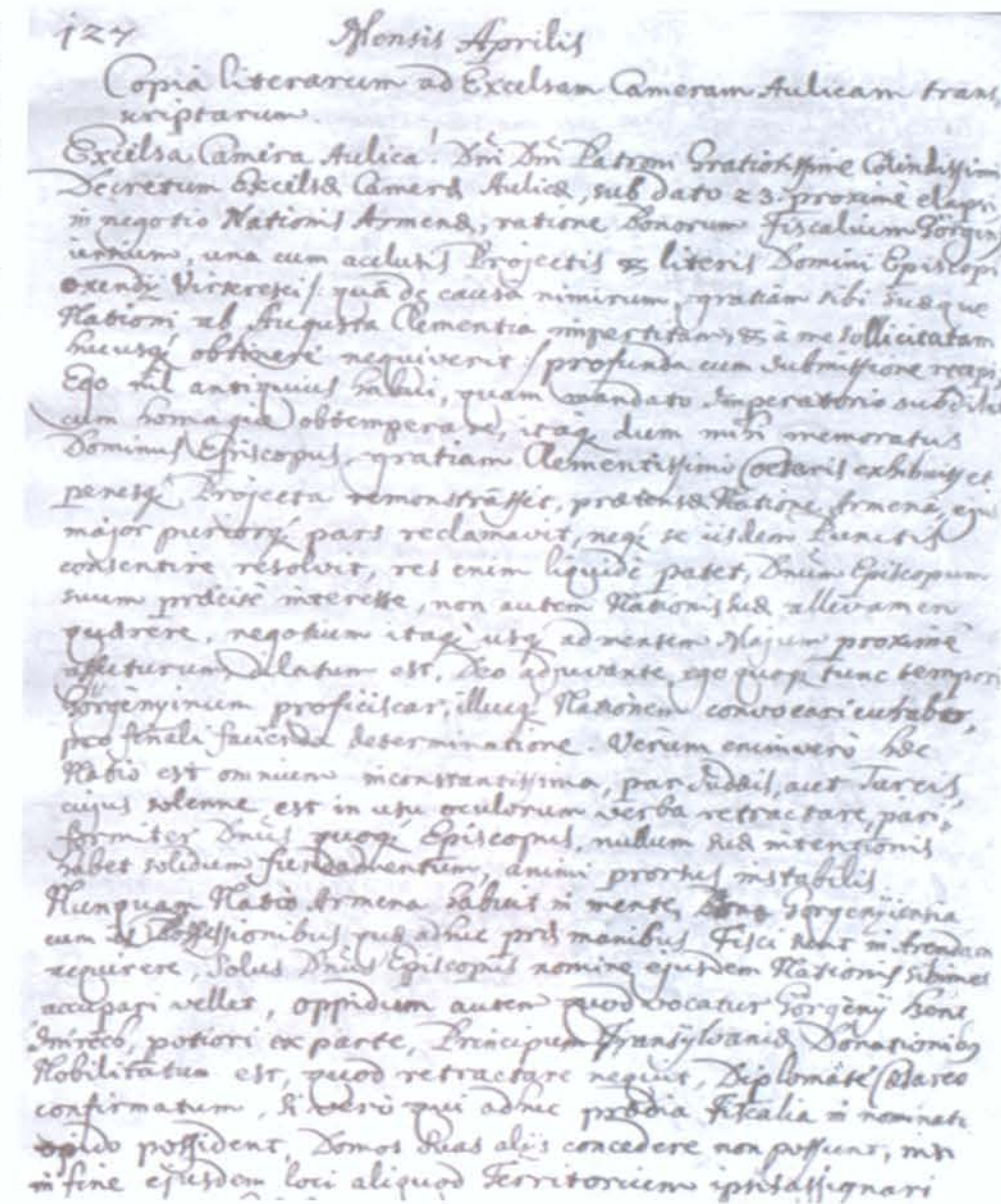 127 Mensis Aprilis
Copia literarum ad Excelsam Cameram Aulicam trans
scriptarum.
Excelsa Camera Aulica! Dni Dni Patroni Gratiosissime Colendissimi
Decretum Excelsæ Cameræ Aulicæ, sub dato 23. proximè elapsi
in negotio Nationis Armenæ, ratione Bonorum Fiscalium Görgin
iensium, una cum aclusis Projectis & literis Domini Episcopi
Oxendÿ Virzeresci /: quâ de causa nimirum, gratiam sibi suæque
Nationi ab Augusta Clementia impertitam, & à me sollicitatam
hucusq obtineri nequiverit :/ profunda cum submissione recepi,
Ego nil antiquius habui, quam mandato Imperatorio subditu
cum homagio obtemperare, itaq dum mihi memoratus
Dominus Episcopus, gratiam Clementissimi Cæsaris exhibuisset
penesq Projecta remonstrâsset, prætensæ Natione Armena, ejus
major puriorq pars reclamavit, neq se iisdem Punctis
consentire resolvit, res enim liquidè patet, Dnum Episcopum
suum præcisè interesse, non autem Nationis suæ allevamen
quærere, negotium itaq usq ad mensem Majum proximè
affuturum dilatum est, Deo adjuvante, ego quoq tunc tempori
Görgènyinum proficiscar, illucq Nationem convocari curabo,
pro finali facienda determinatione. Verùm enimverò hæc
Natio est omnium inconstantissima, par Judæis, aut Turcis,
cujus solenne est in ictu oculorum verba retractare, pari
formiter Dnus quoq Episcopus, nullum suæ intentionis
habet solidum fundamentum, animi prorsus instabilis
Nunquam Natio Armena habuit in mente, Bona Görgenyiensia
cum Possessionibus quæ adhuc præ manibus Fisci sunt in Arendam
acquirere, Solus Dnus Episcopus nomine ejusdem Nationis sibimet
occupari vellet, oppidum autem quod vocatur Görgèny Szent
Imreco, potiori ex parte, Principum Transylvaniæ Donationibq
Nobilitatum est, quod retractare nequit, Diplomate Cæsareo
confirmatum, Si verò qui adhuc prædia Fiscalia in nominato
opido possident, Domos suas alijs concedere non possunt, nisi
in fine ejusdem loci aliquod Territorium ipsis assignari